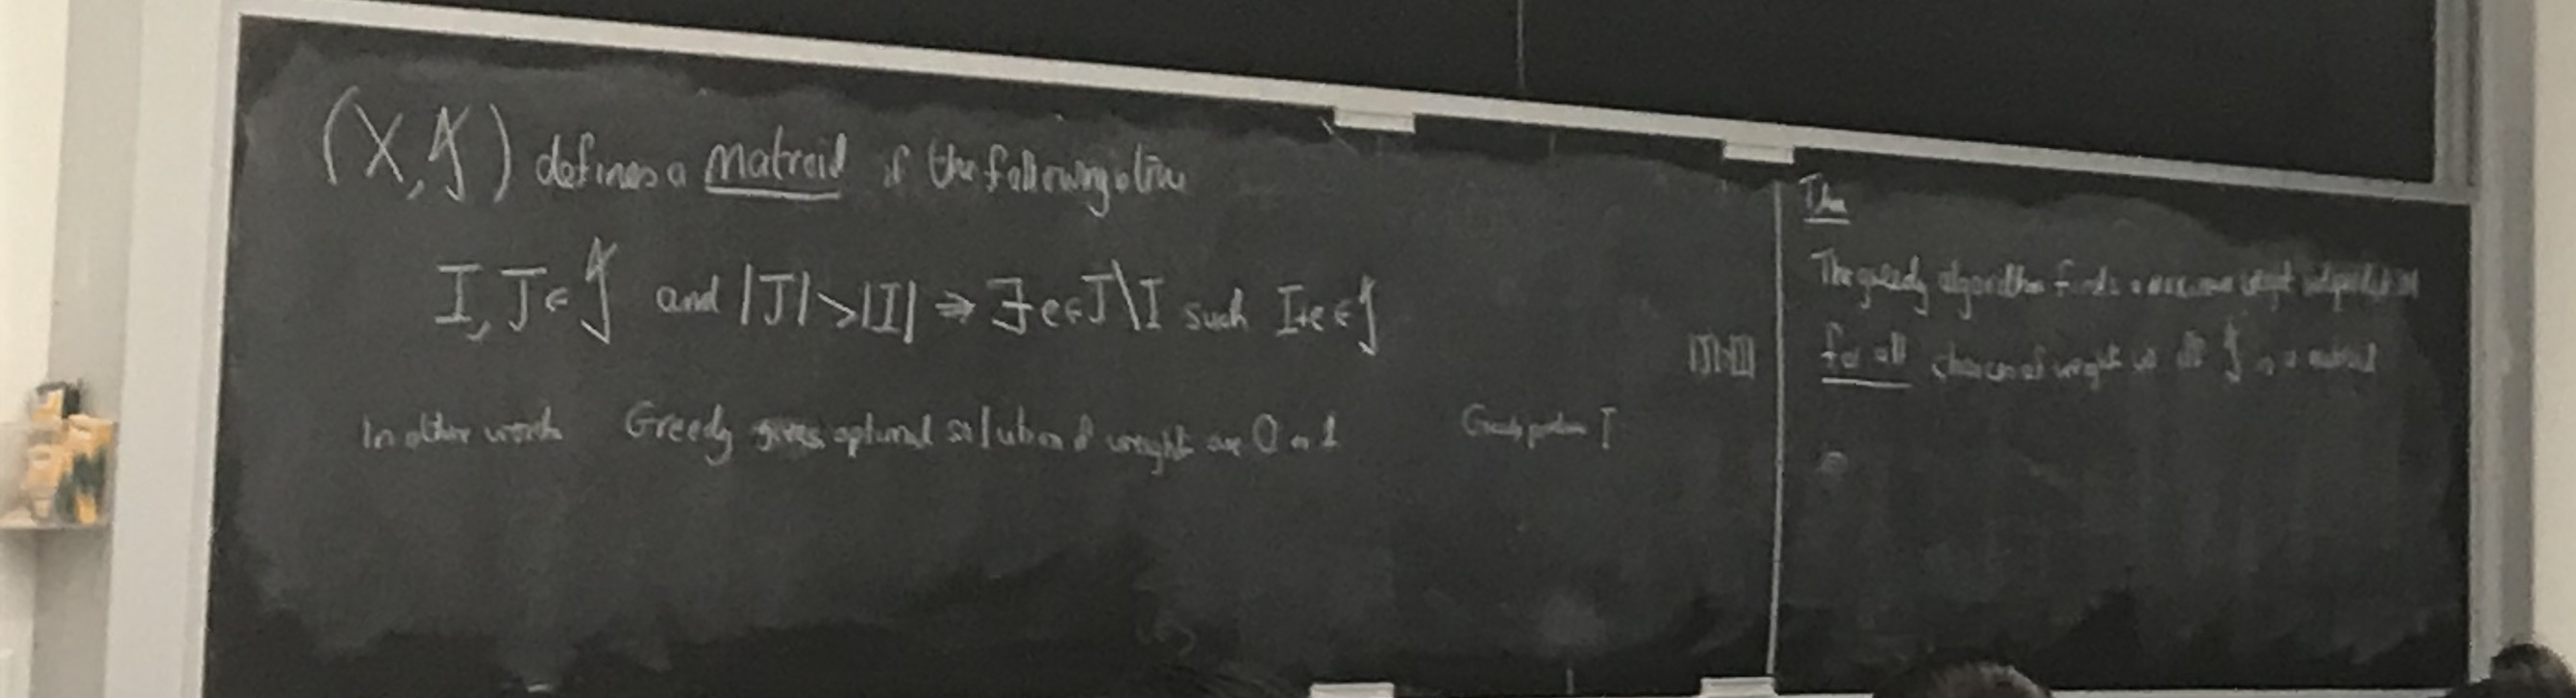 (X, 𝓘) defines a Matroid if the following is true
I, J ∈ 𝓘 and |J| > |I| ⇒ ∃ e ∈ J \ I such I+e ∈ 𝓘
In other words Greedy gives optimal solution if weight are 0 or 1
Greedy I
|J|>|I|
Thm
The greedy algorithm finds a maximum weight independent set
for all choices of weight w iff 𝓘 is a matroid